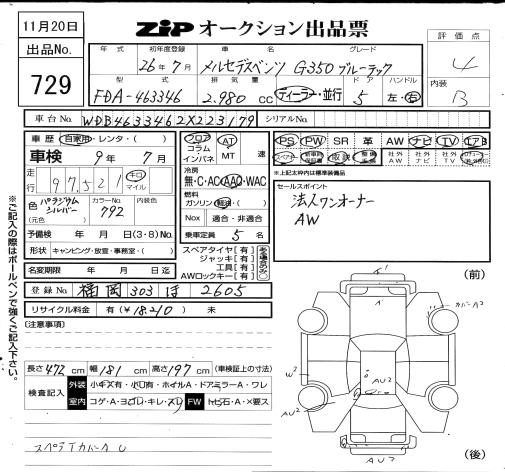 11月20日
出品No.
729
ZIP オークション出品票
評価点
4
内装
B
年式 初年度登録 車名 グレード
26年7月 メルセデスベンツ G350ブルーテック
型式 排気量 ドア ハンドル
FDA-463346 2.980 cc ディーラー・並行 5 左・右
車台No. WDB4633462X223179 シリアルNo.
車歴 自家用・レンタ・( )
車検 9年 7月
走行 97,521 キロ マイル
色 パラジウムシルバー (元色) カラーNo. 792 内装色
予備検 年 月 日(3・8)No.
形状 キャンピング・放宣・事務室・( )
名変期限 年 月 日迄
フロア コラム インパネ AT MT 速
冷房 無・C・AC・AAC・WAC
燃料 ガソリン・軽油・( )
Nox 適合・非適合
乗車定員 5 名
スペアタイヤ [ 有 ]
ジャッキ [ 有 ]
工具 [ 有 ]
AWロックキー [ 有 ]
PS PW SR 革 AW ナビ TV エアB
スペアキー 取説 社外AW 社外ナビ 社外TV
※上記太枠内は標準装備品
セールスポイント
法人ワンオーナー
AW
登録No 福岡 303 ほ 2605
リサイクル料金 有(¥18210) 未
[注意事項]
長さ 472 cm 幅 181 cm 高さ 197 cm (車検証上の寸法)
検査記入 外装 小キズ有・小凹有・ホイルA・ドアミラーA・ワレ
室内 コゲ・A・ヨゴレ・キレ・スレ FW トビ石・A・X要ス
スペアタイカバーA U
※ご記入の際はボールペンで強くご記入下さい。
(前)
カバーA2
W2
AU2
AU2
AU2
(後)